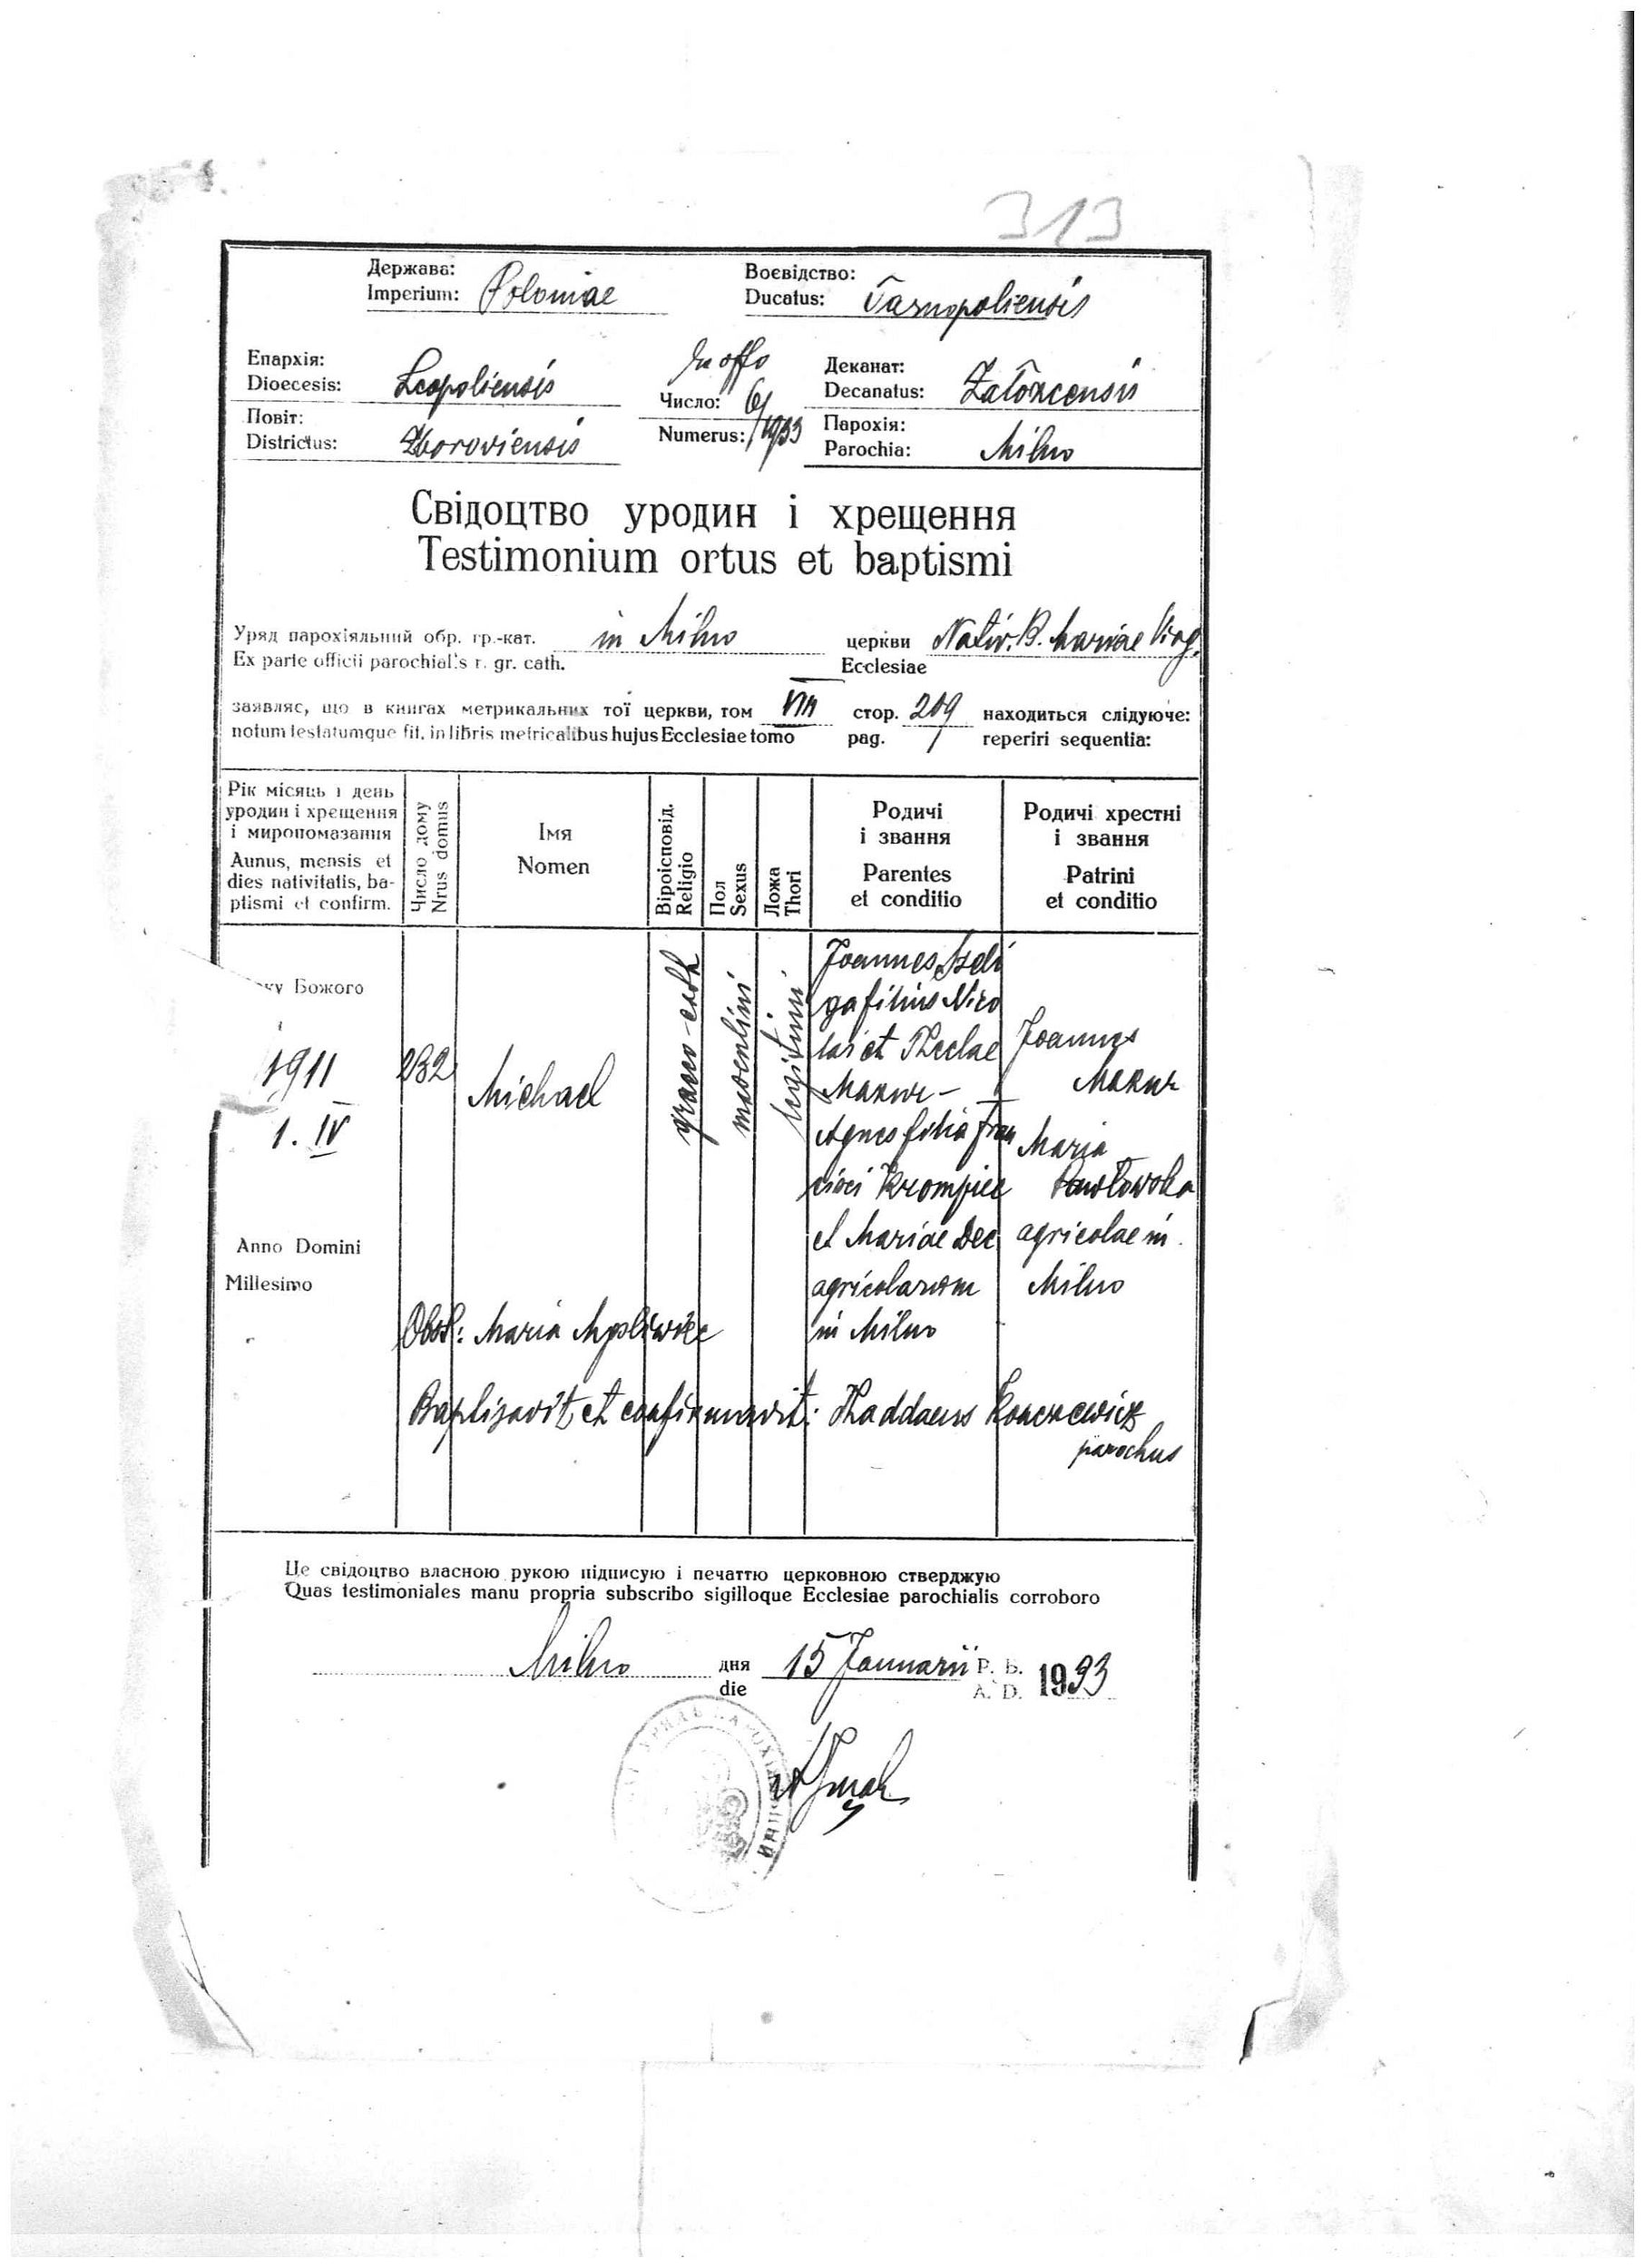 313
Держава:
Imperium: Poloniae
Воєвідство:
Ducatus: Tarnopoliensis
Епархія:
Dioecesis: Leopoliensis
Повіт:
Districtus: Zboroviensis
Ex offo
Число: 6/
Numerus: 1933
Деканат:
Decanatus: Załoxcensis
Парохія:
Parochia: Milno
Свідоцтво уродин і хрещення
Testimonium ortus et baptismi
Уряд парохіяльний обр. гр.-кат. in Milno церкви Nativ. B. Mariae Virg.
Ex parte officii parochialis r. gr. cath. Ecclesiae
заявляє, що в книгах метрикальних тої церкви, том VIII стор. 209 находиться слідуюче:
notum testatumque fit, in libris metricalibus hujus Ecclesiae tomo pag. reperiri sequentia:
Рік місяць і день
уродин і хрещення
і миропомазання
Annus, mensis et
dies nativitatis, ba-
ptismi et confirm.
Число дому
Nrus domus
Імя
Nomen
Віроісповід.
Religio
Пол
Sexus
Ложа
Thori
Родичі
і звання
Parentes
et conditio
Родичі хрестні
і звання
Patrini
et conditio
ку Божого
1911
1. IV
Anno Domini
Millesimo
232
Michael
graeco-cath
masculini
legitimi
Joannes Szeli
ga filius Nico
lai et Theclae
Mazur -
Agnes filia Fran
cisci Krompiec
et Mariae Dec
agricolarum
in Milno
Joannes
Mazur
Maria
Pawłowska
agricolae in
Milno
Obst: Maria Mysliwiec
Baptisavit et confirmavit: Thaddaeus Konczewicz
parochus
Це свідоцтво власною рукою підписую і печаттю церковною стверджую
Quas testimoniales manu propria subscribo sigilloque Ecclesiae parochialis corroboro
Milno дня 15 Januarii Р. Б. 1933
die A. D.